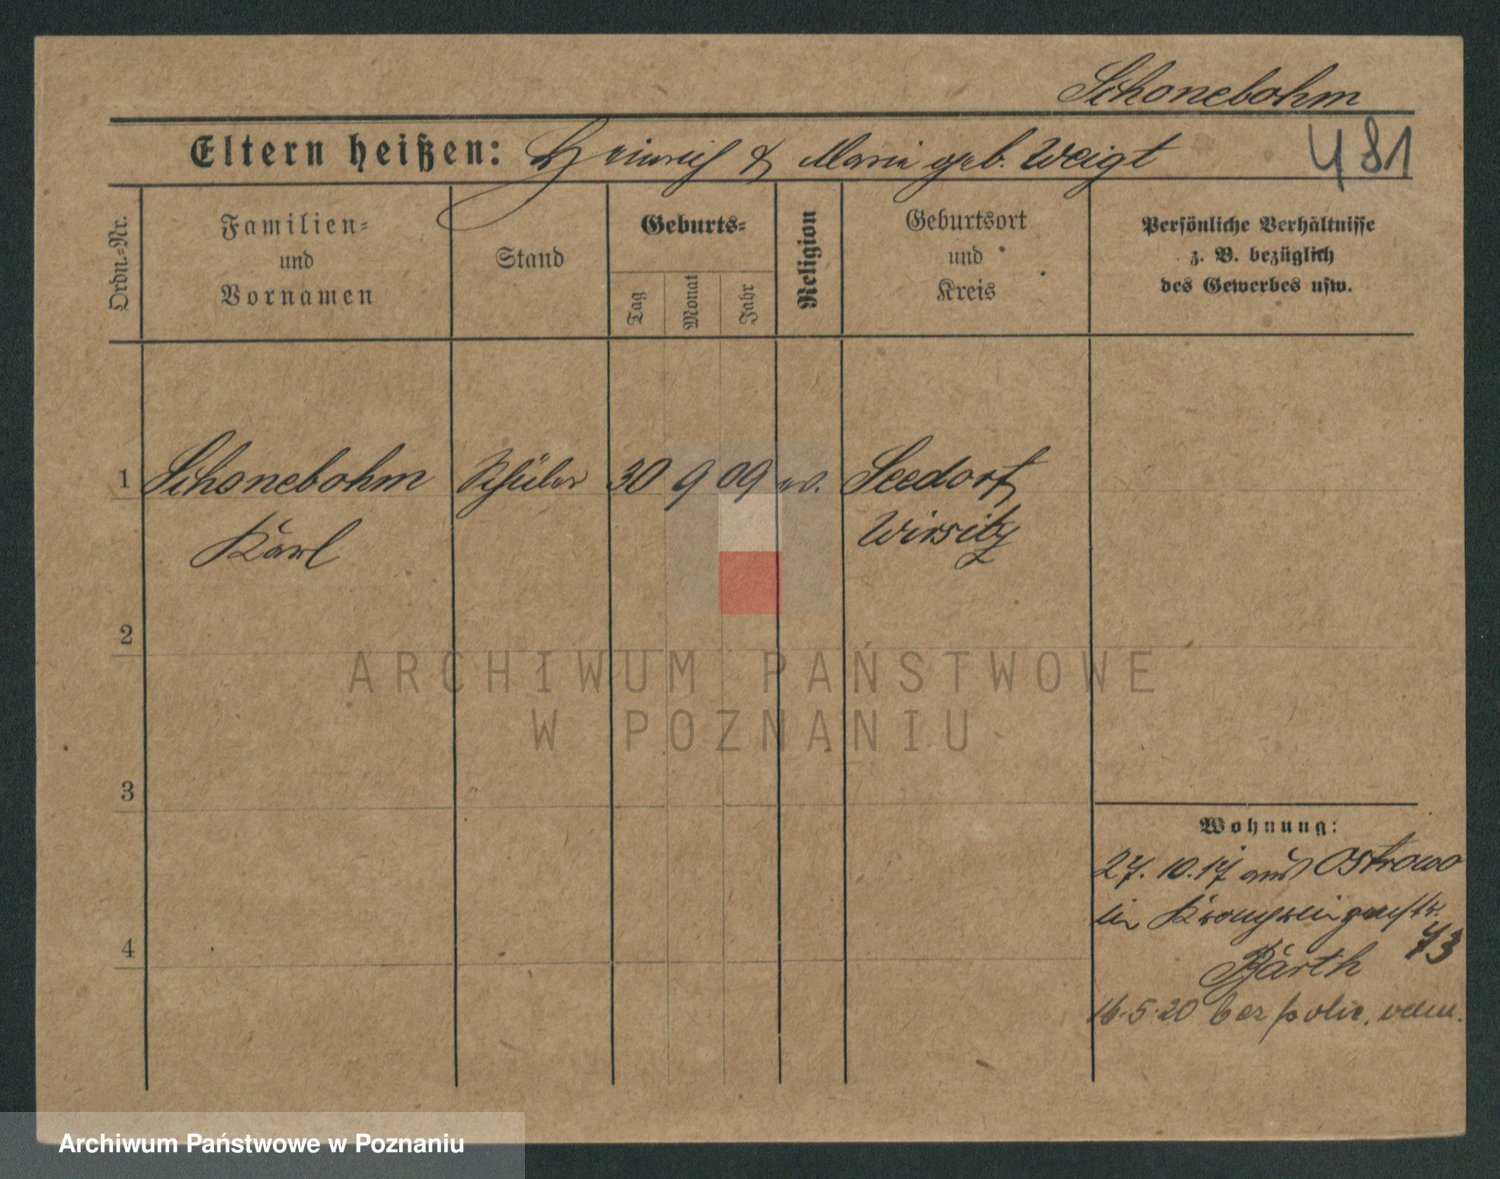 Schonebohm
Eltern heißen: Heinrich & Marie geb. Weigt
481
Ordn.-Nr.
Familien-
und
Vornamen
Stand
Geburts-
Tag
Monat
Jahr
Religion
Geburtsort
und
Kreis
Persönliche Verhältnisse
z. B. bezüglich
des Gewerbes usw.
1 Schonebohm Schüler 30 9 09 ev. Seedorf
Karl Wirsitz
2
3
4
Wohnung:
27. 10. 17 aus Ostrowo
in Kronprinzenstr.
73
Barth
16.5.20 bez polic.
ARCHIWUM PAŃSTWOWE
W POZNANIU
Archiwum Państwowe w Poznaniu